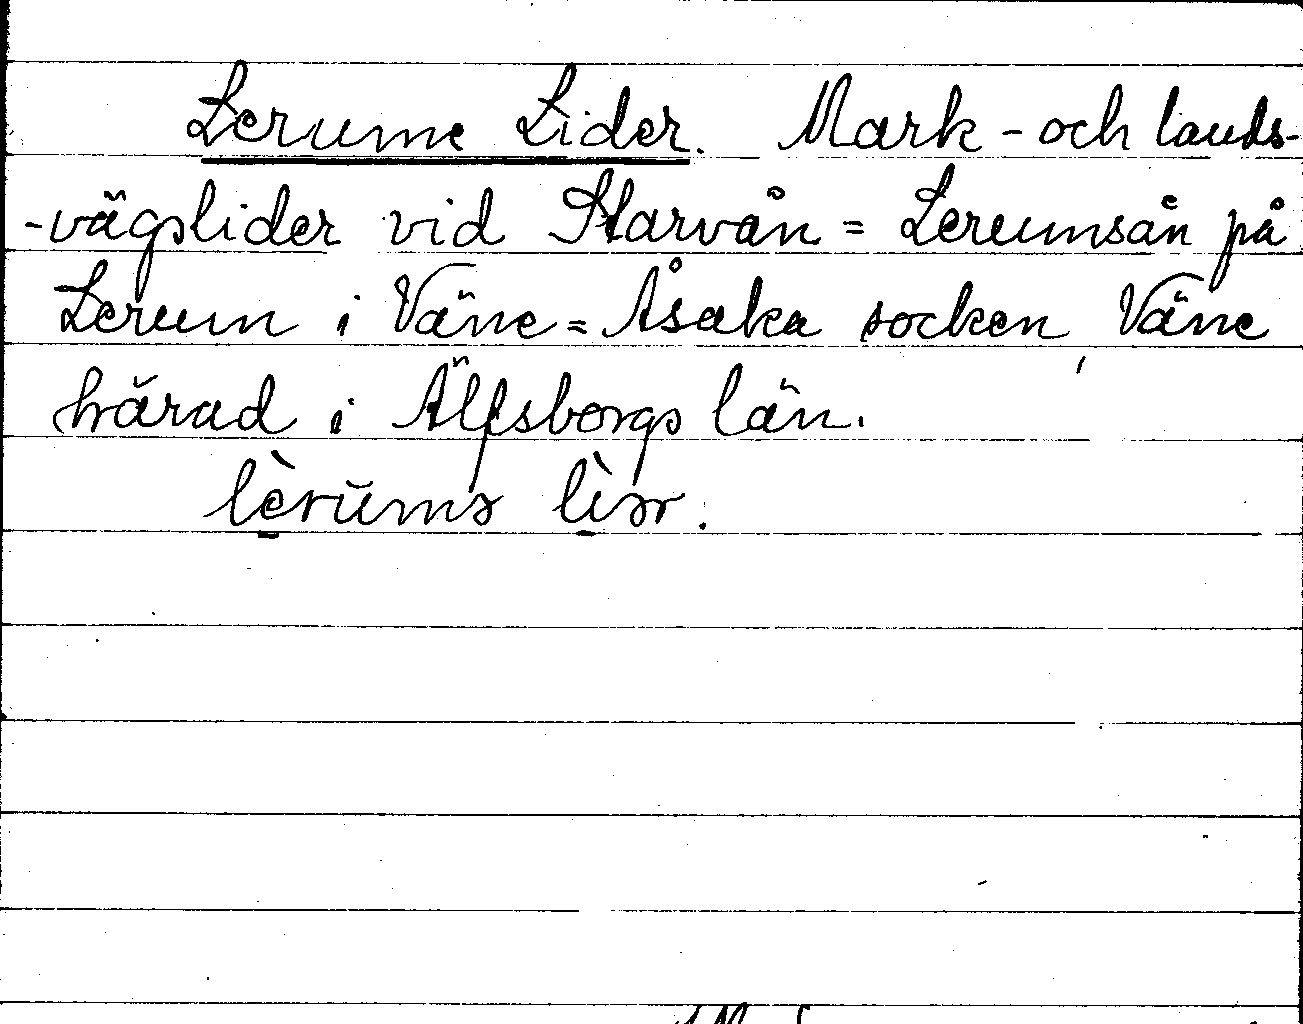 Lerums Lider. Mark-och lands-
-vägslider vid Starvån = Lerumsån på
Lerum i Väne=Åsaka socken, Väne
härad i Älfsborgs län.
lèrŭms lìər.